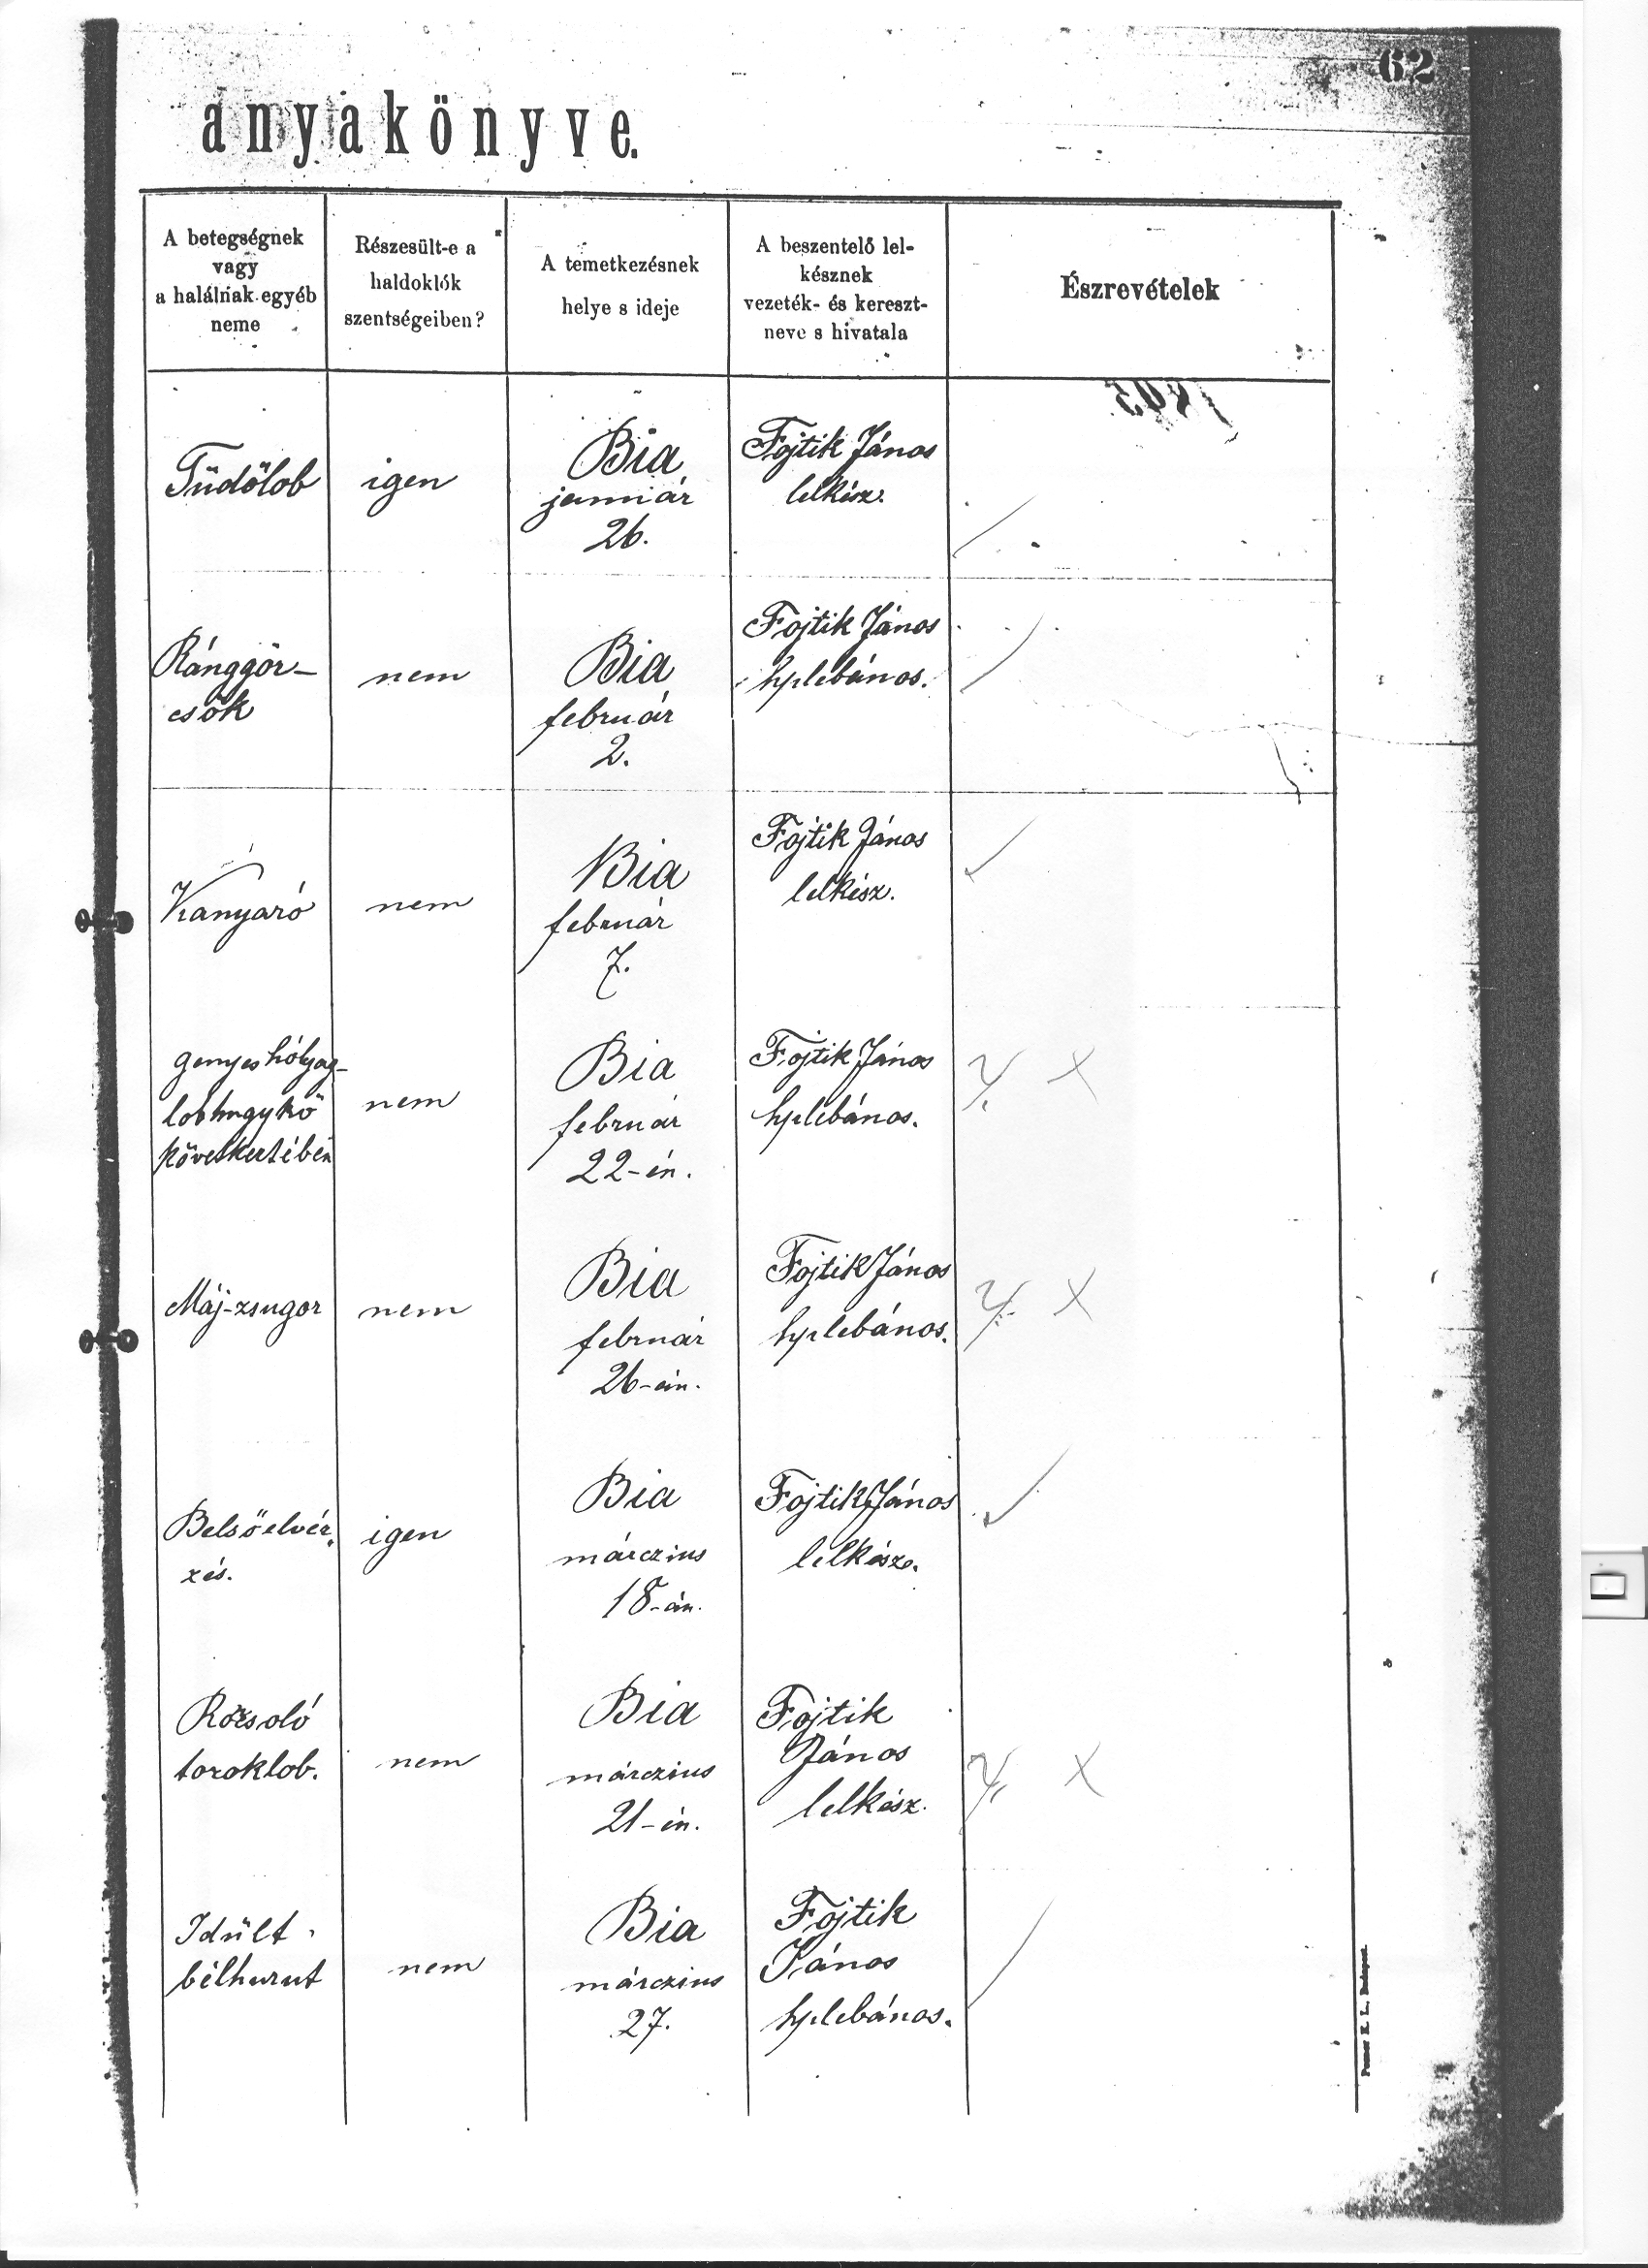 62
anyakönyve.
A betegségnek
vagy
a halálnak egyéb
neme
Részesült-e a
haldoklók
szentségeiben?
A temetkezésnek
helye s ideje
A beszentelő lel-
késznek
vezeték- és kereszt-
neve s hivatala
Észrevételek
Tüdőlob
igen
Bia
január
26.
Fojtik János
lelkész.
Ránggör-
csök
nem
Bia
február
2.
Fojtik János
hplebános.
Kanyaró
nem
Bia
február
7.
Fojtik János
lelkész.
genyes hólyag-
lob hugykő
következtében
nem
Bia
február
22-én.
Fojtik János
hplebános.
Máj-zsugor
nem
Bia
február
26-án.
Fojtik János
hplebános.
Belső elvér-
zés.
igen
Bia
márczius
18-án.
Fojtik János
lelkész.
Roncsoló
toroklob.
nem
Bia
márczius
21-én.
Fojtik
János
lelkész.
Idült
bélhurut
nem
Bia
márczius
27.
Fojtik
János
hplebános.